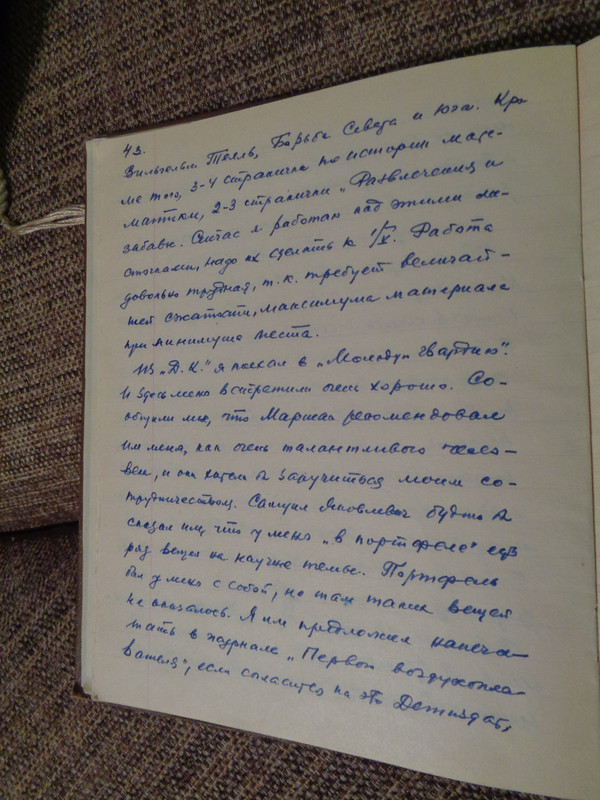 43.
Вильгельм Телль, Борьба Севера и Юга. Кро-
ме того, 3-4 странички по истории мате-
матики, 2-3 странички „Развлечения и
забавы. Сейчас я работаю над этими ли-
сточками, надо их сделать к 1/X. Работа
довольно трудная, т.к. требует величай-
шей сжатости, максимума материала
при минимуме места.
Из „Д.К." я поехал в „Молодую гвардию".
И здесь меня встретили очень хорошо. Со-
общили мне, что Маршак рекомендовал
им меня, как очень талантливого чело-
века, и они хотели б заручиться моим со-
трудничеством. Самуил Яковлевич будто б
сказал им, что у меня „в портфеле" есть
ряд вещей на научные темы. Портфель
был у меня с собой, но там таких вещей
не оказалось. Я им предложил напеча-
тать в журнале „Первого воздухопла-
вателя", если согласится на это Детиздат,